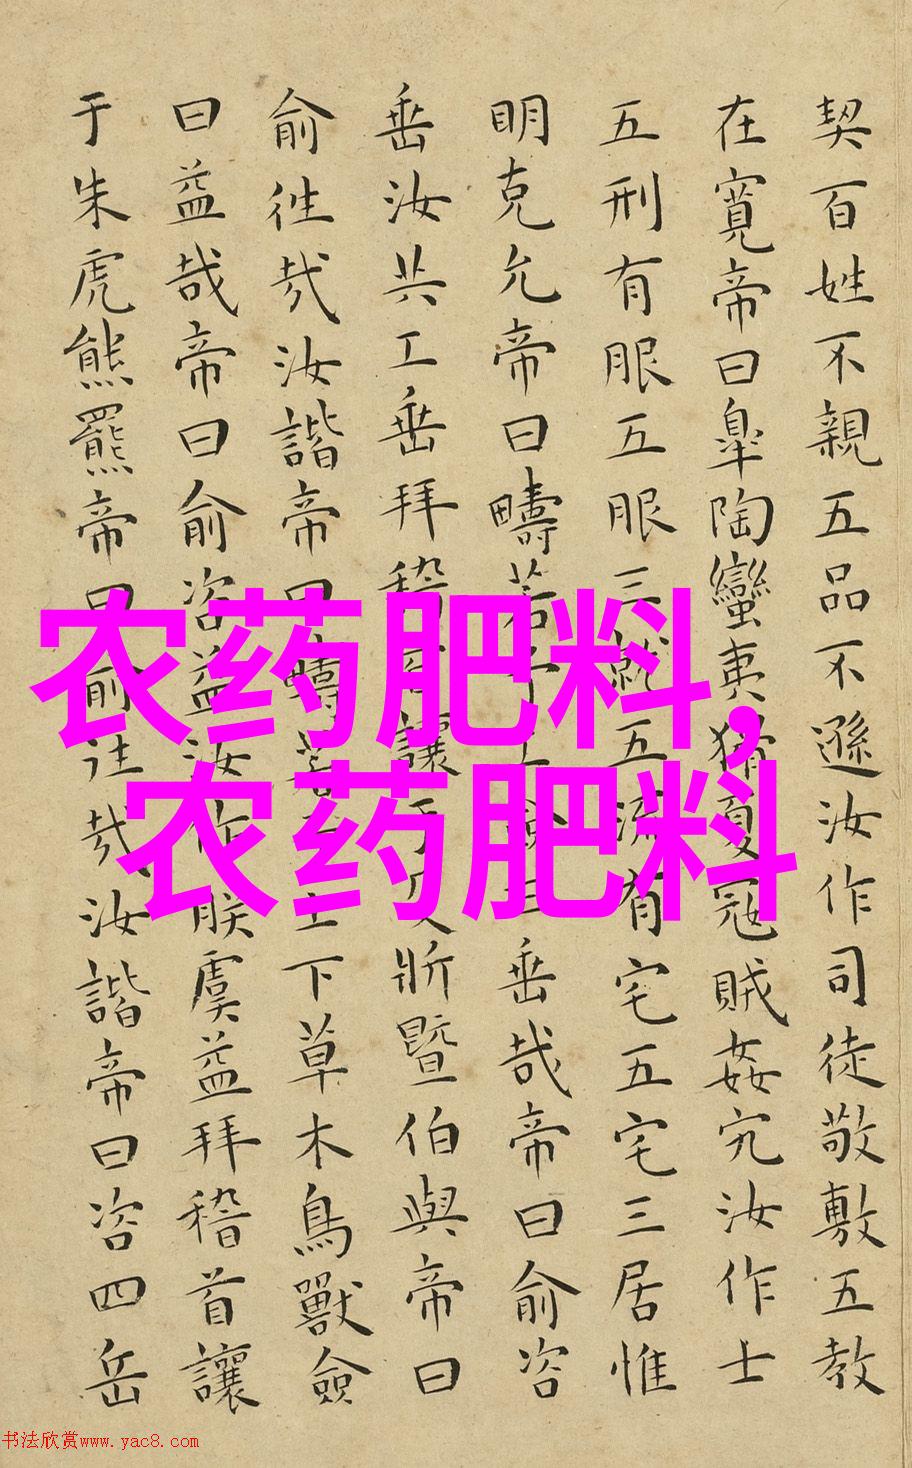 契百姓不親五品不遜汝作司徒敬敷五教
在寬帝曰皐陶蠻夷猾夏冦賊姦宄汝作士
五刑有服五服三就五流有宅五宅三居惟
明克允帝曰疇若予工僉曰垂哉帝曰俞咨
垂汝共工垂拜稽首讓于殳斨暨伯與帝曰
俞徃哉汝諧帝曰疇若予上下草木鳥獸僉
曰益哉帝曰俞咨益汝作朕虞益拜稽首讓
于朱虎熊羆帝曰俞往哉汝諧帝曰咨四岳
农药肥料,
农药肥料
书法欣赏www.yac8.com